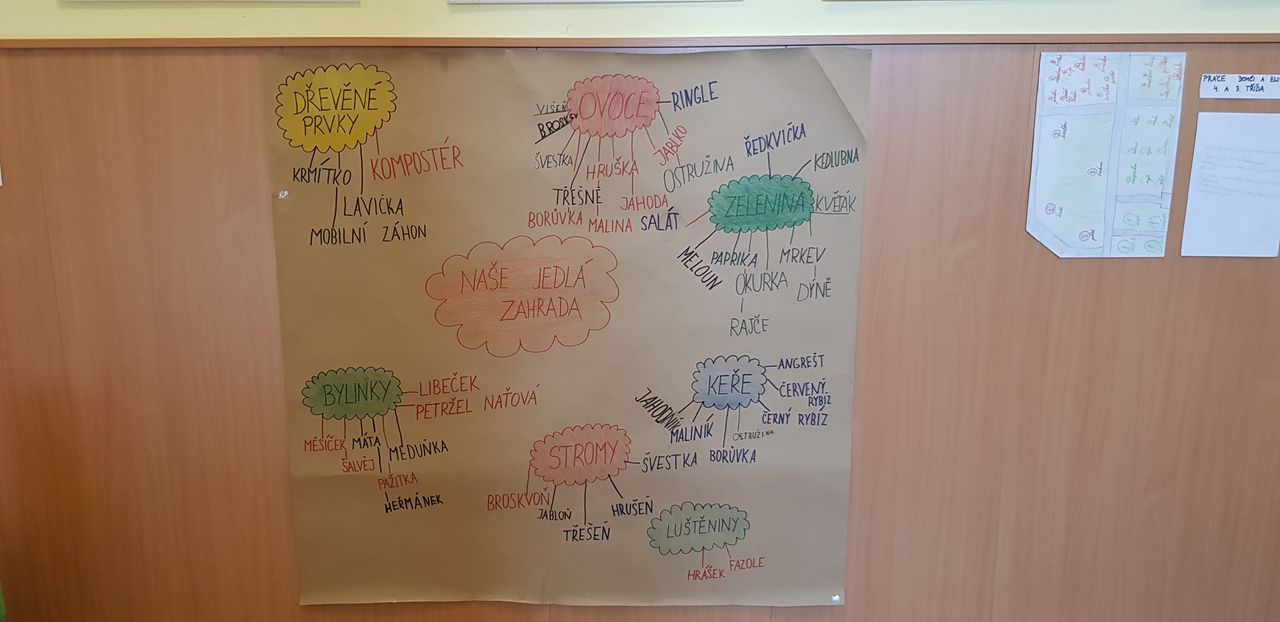 DŘEVĚNÉ
PRVKY
KRMÍTKO
KOMPOSTÉR
LAVIČKA
MOBILNÍ ZÁHON
OVOCE
VIŠEŇ
BROSKEV
ŠVESTKA
TŘEŠNĚ
BORŮVKA
HRUŠKA
MALINA
JAHODA
JABLKO
OSTRUŽINA
RINGLE
ZELENINA
ŘEDKVIČKA
KEDLUBNA
KVĚTÁK
SALÁT
MELOUN
PAPRIKA
OKURKA
RAJČE
MRKEV
DÝNĚ
NAŠE JEDLÁ
ZAHRADA
BYLINKY
LIBEČEK
PETRŽEL NAŤOVÁ
MĚSÍČEK
MÁTA
MEDUŇKA
ŠALVĚJ
PAŽITKA
HEŘMÁNEK
KEŘE
ANGREŠT
ČERVENÝ
RYBÍZ
ČERNÝ RYBÍZ
JAHODNÍK
MALINÍK
OSTRUŽINA
BORŮVKA
STROMY
ŠVESTKA
BROSKVOŇ
JABLOŇ
TŘEŠEŇ
HRUŠEŇ
LUŠTĚNINY
HRÁŠEK
FAZOLE
PRÁCE DOMČI A
4. A 3. TŘÍDA